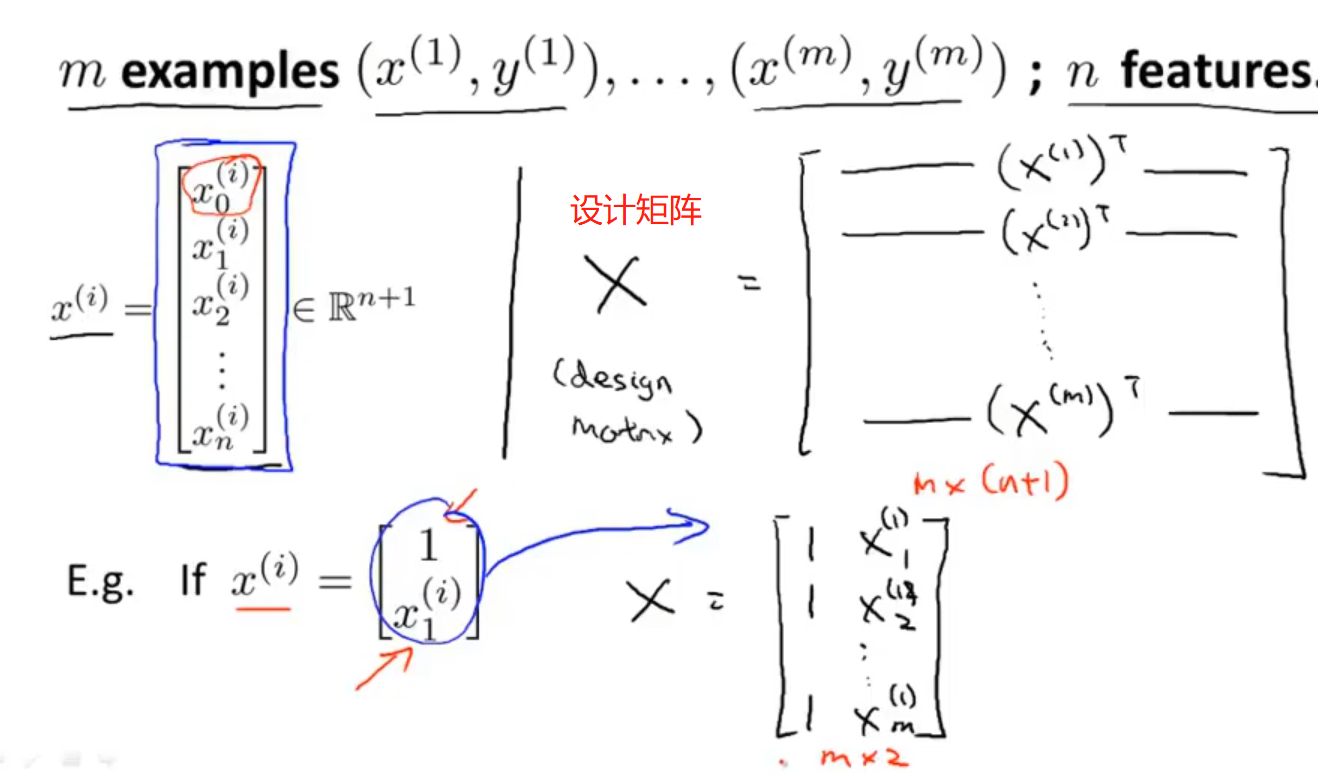 m examples (x^{(1)}, y^{(1)}), ..., (x^{(m)}, y^{(m)}) ; n features.
x^{(i)} = [x_0^{(i)} x_1^{(i)} x_2^{(i)} ⋮ x_n^{(i)}] ∈ ℝ^{n+1}
设计矩阵
X =
(design
matrix)
(x^{(1)})^T
(x^{(2)})^T
⋮
(x^{(m)})^T
m x (n+1)
E.g. If x^{(i)} = [1 x_1^{(i)}]
X =
1 x_1^{(1)}
1 x_2
⋮
1 x_m^{(1)}
m x 2